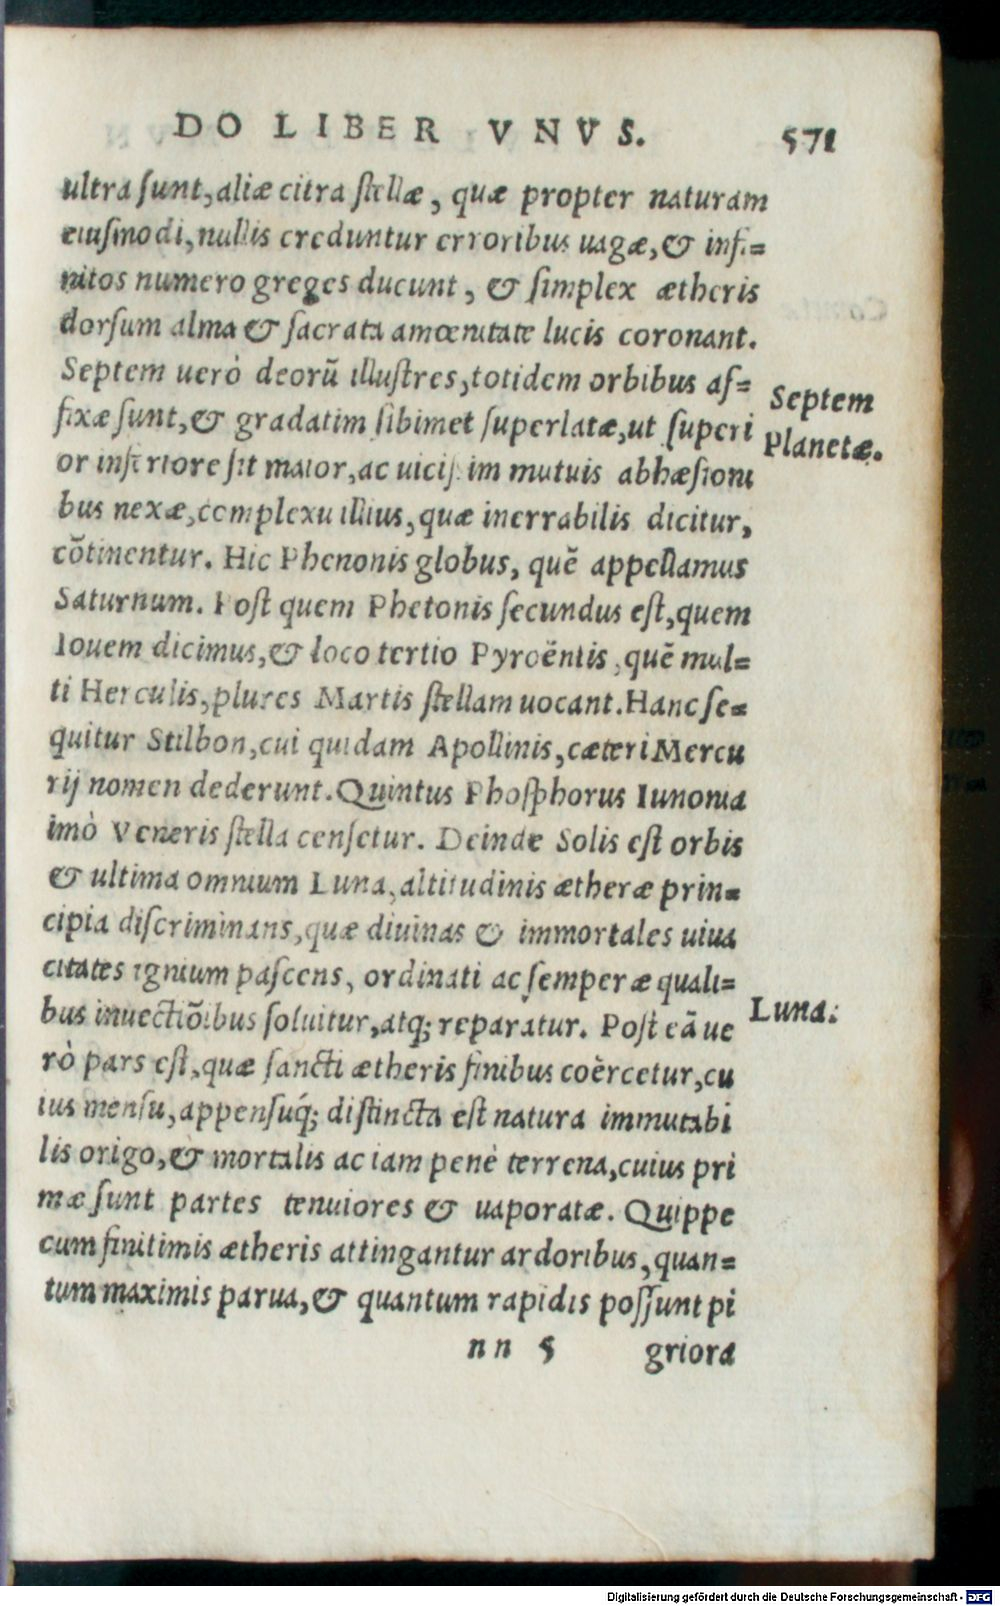 DO LIBER VNVS. 571
ultra sunt, aliæ citra stellæ, quæ propter naturam
eiusmodi, nullis creduntur erroribus uagæ, & infi=
nitos numero greges ducunt, & simplex ætheris
dorsum alma & sacrata amœnitate lucis coronant.
Septem uerò deorũ illustres, totidem orbibus af=
fixæ sunt, & gradatim sibimet superlatæ, ut superi
or inferiore sit maior, ac uicissim mutuis abhæsioni
bus nexæ, complexu illius, quæ inerrabilis dicitur,
cõtinentur. Hic Phenonis globus, quẽ appellamus
Saturnum. Post quem Phetonis secundus est, quem
Iouem dicimus, & loco tertio Pyroëntis, quẽ mul=
ti Herculis, plures Martis stellam uocant. Hanc se=
quitur Stilbon, cui quidam Apollinis, cæteri Mercu
rij nomen dederunt. Quintus Phosphorus Iunonia
imò Veneris stella censetur. Deinde Solis est orbis
& ultima omnium Luna, altitudinis ætheræ prin=
cipia discriminans, quæ diuinas & immortales uiua
citates ignium pascens, ordinati ac semper æquali=
bus inuectiõibus soluitur, atq; reparatur. Post eã ue
rò pars est, quæ sancti ætheris finibus coërcetur, cu
ius mensu, appensuq́; distincta est natura immutabi
lis origo, & mortalis ac iam penè terrena, cuius pri
mæ sunt partes tenuiores & uaporatæ. Quippe
cum finitimis ætheris attingantur ardoribus, quan=
tum maximis parua, & quantum rapidis possunt pi
nn 5 griora
Septem
Planetæ.
Luna:
Digitalisierung gefördert durch die Deutsche Forschungsgemeinschaft - DFG